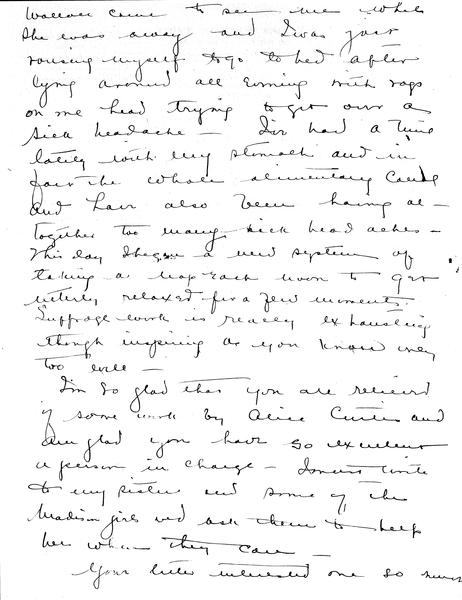 Wallace came to see me while
she was away and I was just
rousing myself to go to bed after
lying around all evening with rags
on me head trying to get over a
sick headache – I've had a time
lately with my stomach and in
fact the whole alimentary canal
and have also been having al-
together too many sick head aches –
This day I began a new system of
taking a nap each noon to get
utterly relaxed for a few moments.
Suffrage work is really exhausting
though inspiring as you know only
too well –
I'm so glad that you are relieved
of some work by Alice Curtis and
am glad you have so excellent
a person in charge – I must write
to my sister and some of the
Madison girls and ask them to help
her when they can –
Your letter interested me so much